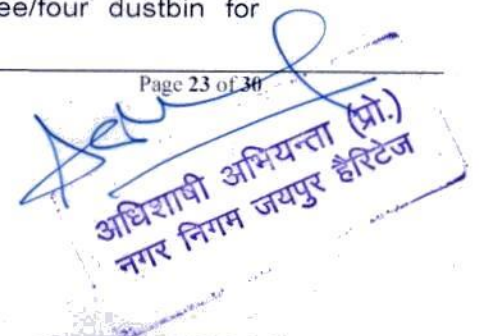 ee/four dustbin for
Page 23 of 30
अधिशाषी अभियन्ता (प्रो.)
नगर निगम जयपुर हैरिटेज